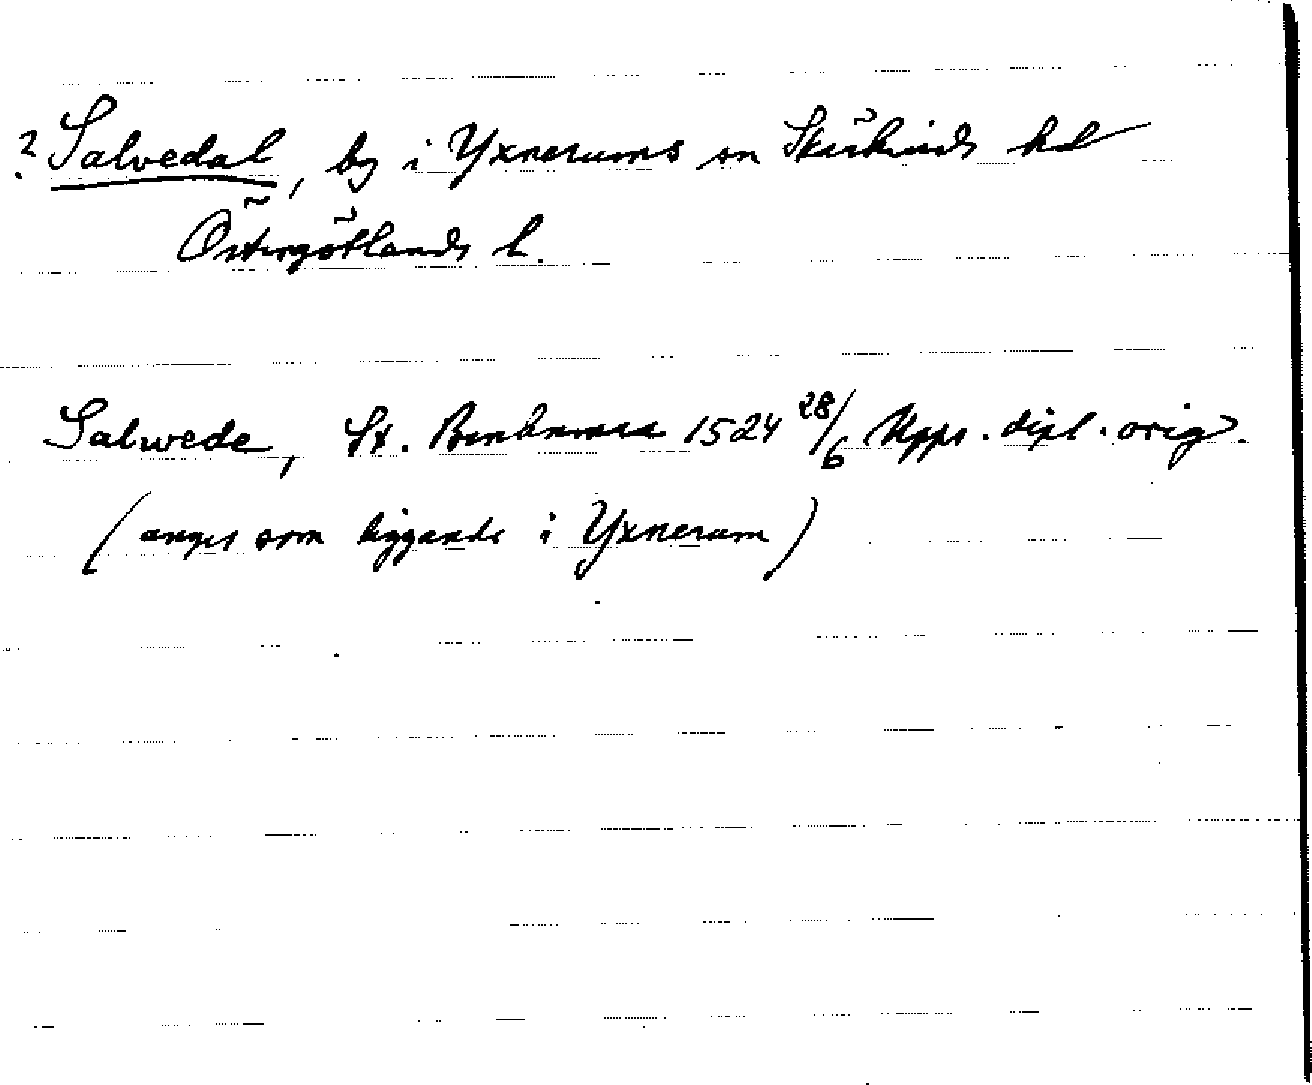 ? Salvedal, by i Yxnerums sn Skärkinds hd
Östergötlands l.
Salwede, St. 1524 28/6 Upps. dipl. orig.
(anges som liggande i Yxnerum)